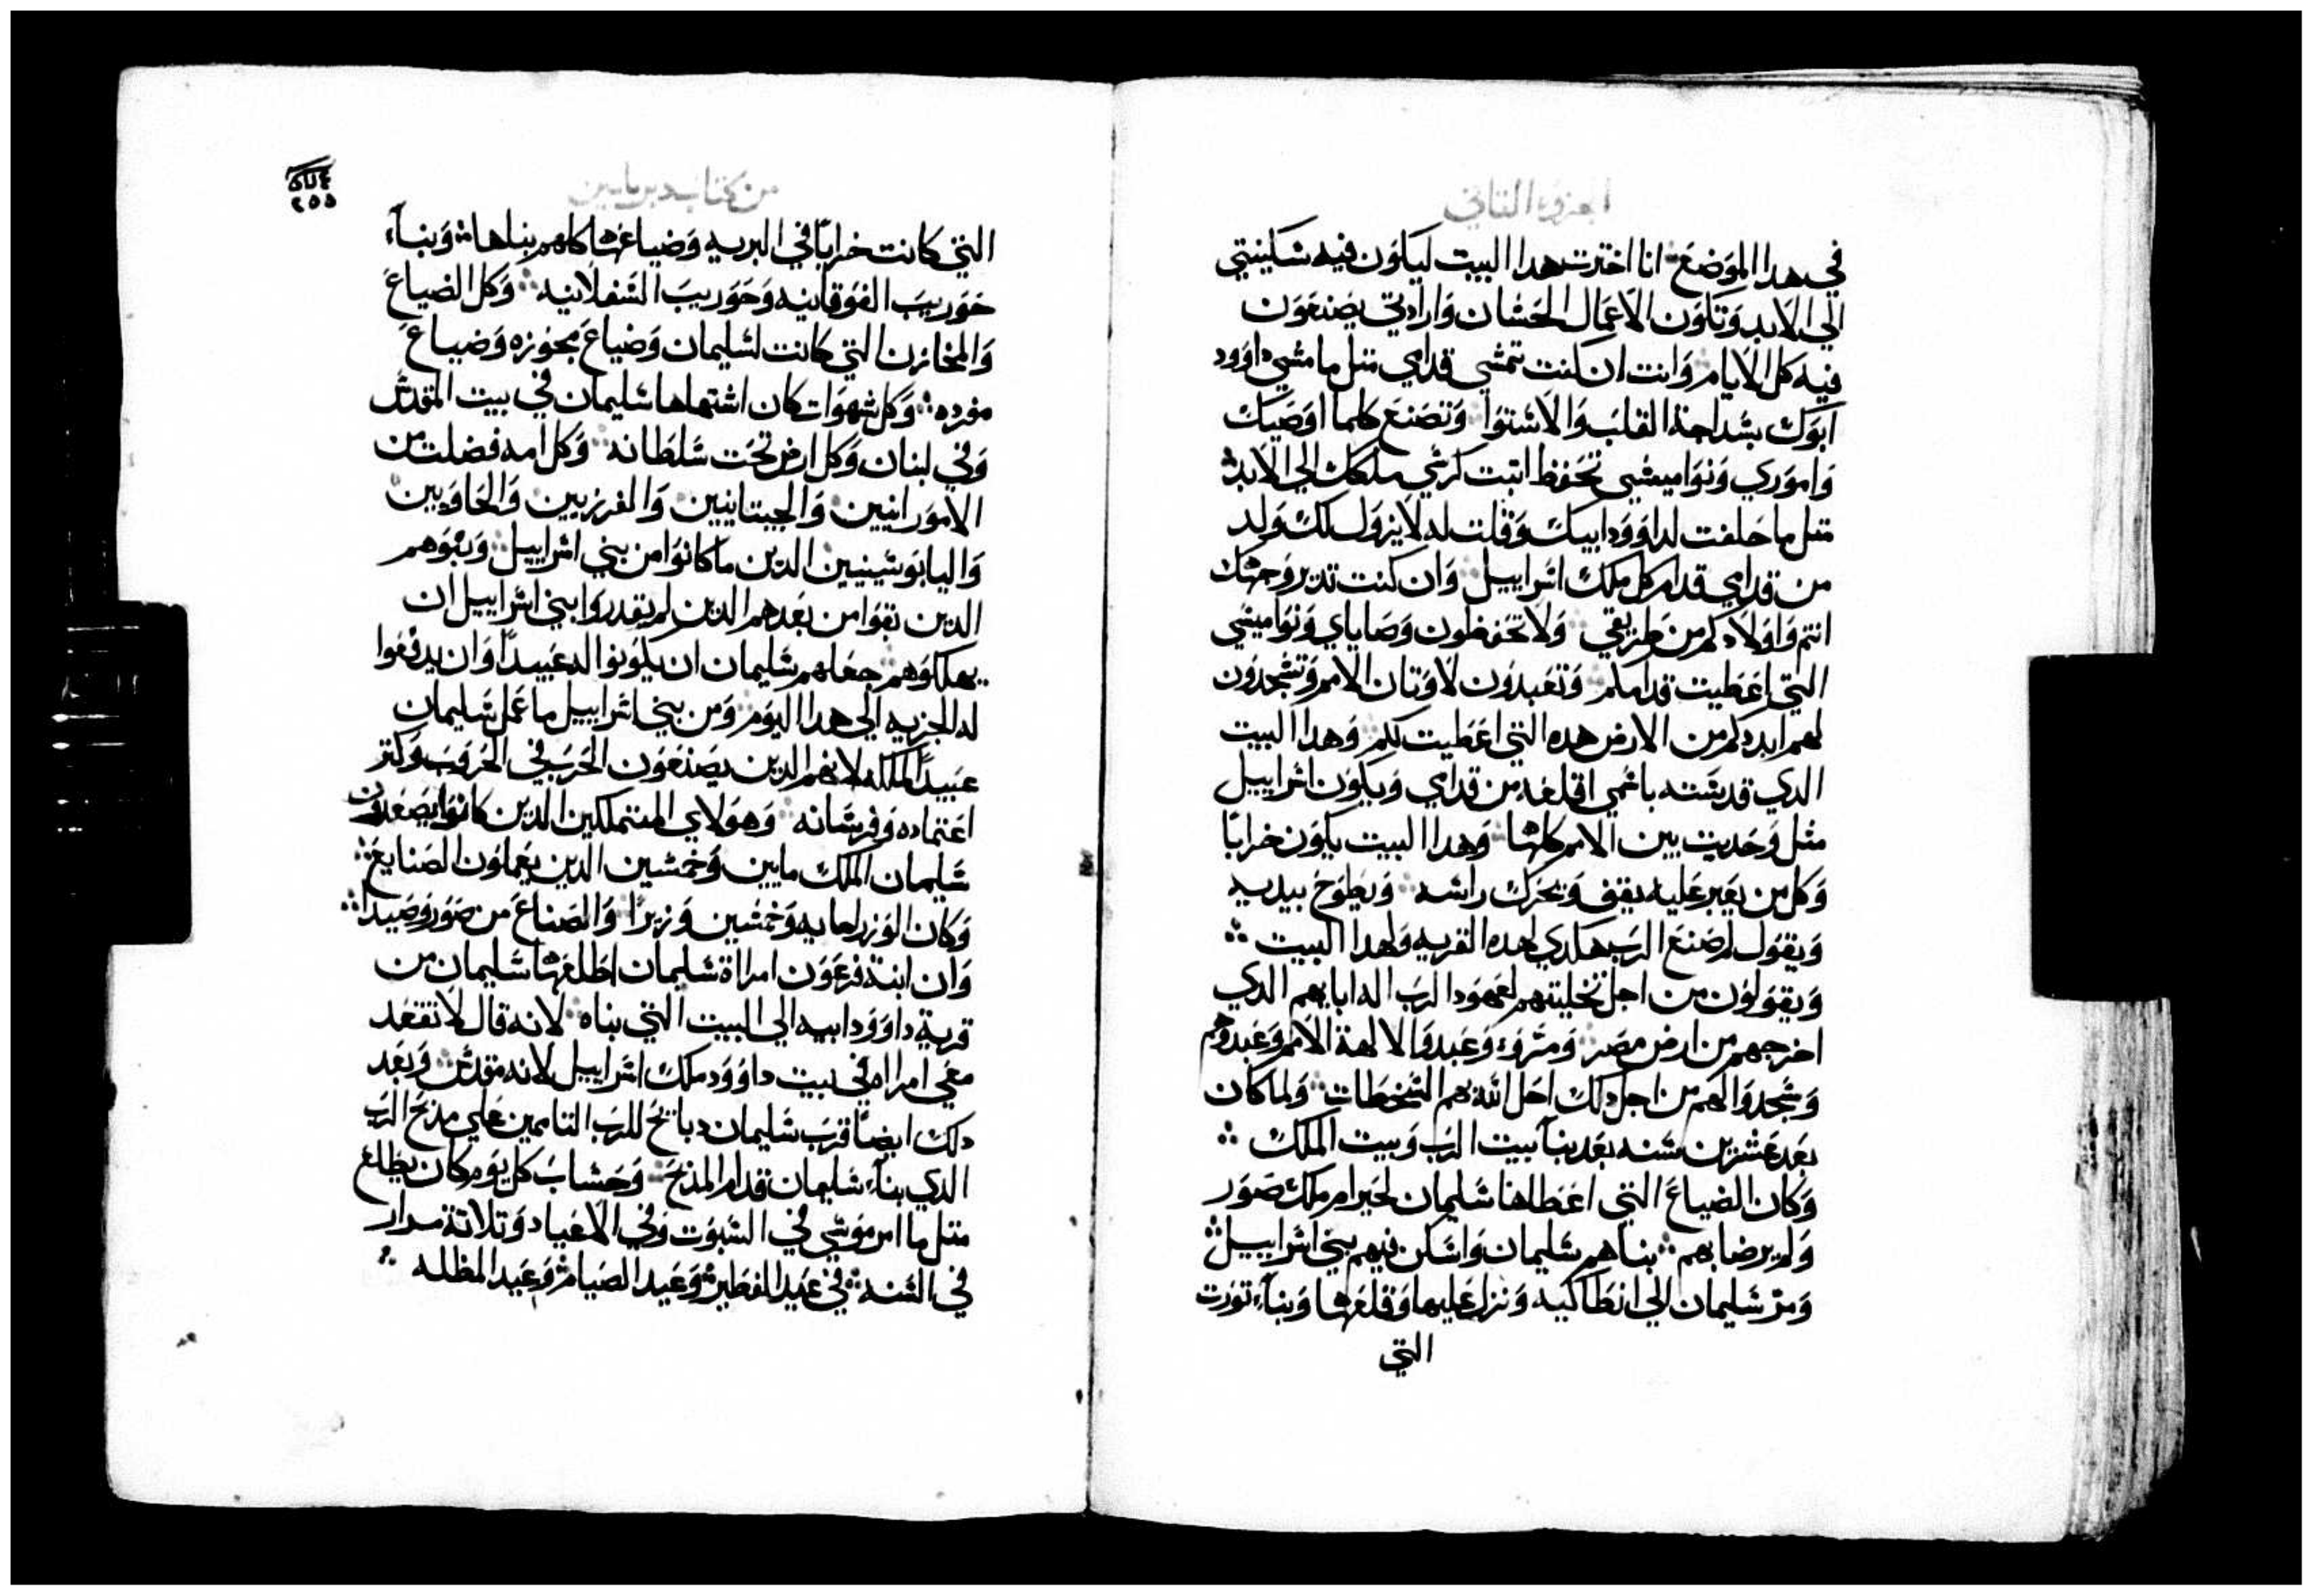 الجزو الثاني
في هدا الموضع انا اخترت هدا البيت ليكون فيه سكينتي
الي الابد وتكون الاعمال الحسان وارادتي يصنعون
فيه كل الايام وانت ان كنت تمشي قدامي متل ما مشي داوود
ابوك بسداجة القلب والاستوا وتصنع كلما اوصيك
واموري ونواميسي تحفظ اتبت كرسي ملكك الي الابد
متل ما حلفت لداوود ابيك وقلت له لا يزول لك ولد
من قدامي قدام كل ملك اسراييل وان كنت تدير وجهك
انتم واولادكم من طريقي ولا تحفظون وصاياي ونواميسي
التي اعطيت قدامكم وتعبدون لاوتان الامم وتسجدون
لهم ابددكم من الارض هده التي اعطيت لكم وهدا البيت
الدي قدسته باسمي اقلعه من قدامي ويكون اسراييل
متل وحديت بين الامم كلها وهدا البيت يكون خرابا
وكل من يعبر عليه يقف ويحرك راسه ويطوح بيديه
ويقول لم صنع الرب هكدي لهده القريه ولهدا البيت
ويقولون من اجل تخليتهم لعهود الرب اله ابايهم الدي
اخرجهم من ارض مصر ومروء وعبدوا لالهة الامم وعبدوهم
وسجدوا لهم من اجل دلك احل الله بهم السخطات ولما كان
بعد عشرين سنه بعد بنا بيت الرب وبيت الملك
وكان الضياع التي اعطاها سليمان لحيرام ملك صور
ولم يرضا بهم بناهم سليمان واسكن فيهم بني اسراييل
ومر سليمان الي انطاكيه ونزل عليها وقلعها وبناء تورت
التي
من كتاب دبرياسين
٢٥٥
التي كانت خرابا في البريه وضياعها كلهم بناها وبناء
حوريب الفوقانيه وحوريب السفلانيه وكل الضياع
والمخازن التي كانت لسليمان وضياع محوزه وضياع
مفرده وكل شهوات كان اشتهاها سليمان في بيت المقدس
وفي لبنان وكل ارض تحت سلطانه وكل امه فضلت من
الامورانيين والجيتانيين والفرزيين والحاويين
واليابوسينيين الدين ما كانوا من بني اسراييل وبنوهم
الدين بقوا من بعدهم الدين لم يقدروا بني اسراييل ان
يهلكوهم جعلهم سليمان ان يكونوا له عبيدا وان يدفعوا
له الجزيه الي هدا اليوم ومن بني اسراييل ما عمل سليمان
عبيدا لملكه لانهم الدين يصنعون الحرب في الحروب وكتر
اعتماده وفرسانه وهولاي المتملكين الدين كانوا يصعدون
سليمان الملك مايين وخمسين الدين يعملون الصنايع
وكان الوزرا مايه وخمسين وزيرا والصناع من صور وصيدا
وان ابنة فرعون امراة سليمان اطلعها سليمان من
قرية داوود ابيه الي البيت التي بناه لانه قال لا تقعد
معي امراه في بيت داوود ملك اسراييل لانه مقدس وبعد
دلك ايضا قرب سليمان دبايح للرب التامين علي مدبح الرب
الدي بناء سليمان قدام المدبح وحساب كل يوم كان يطلع
متل ما امر موسي في السبوت وفي الاعياد وتلاتة مرار
في السنه في عيد الفطير وعيد الصيام وعيد المظله